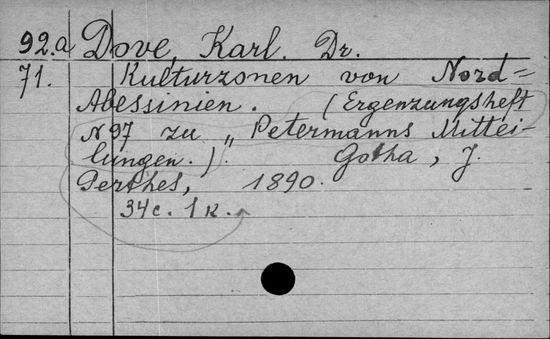 92.a Dove, Karl. Dr.
71. Kulturzonen von Nord=
Abessinien. (Ergenzungsheft
N 97 zu „Petermanns Mittei-
lungen.)". Gotha, J.
Perthes, 1890.
34c. 1 K.